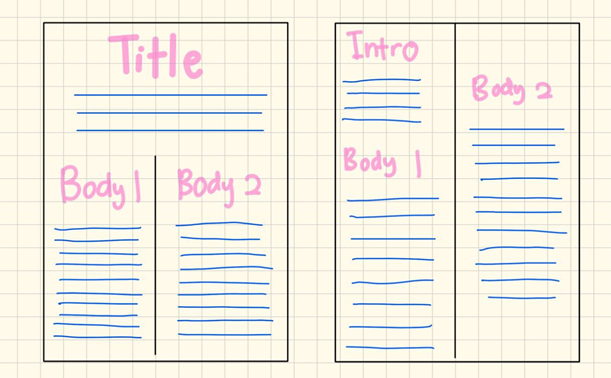 Title
Body 1
Body 2
Intro
Body 1
Body 2